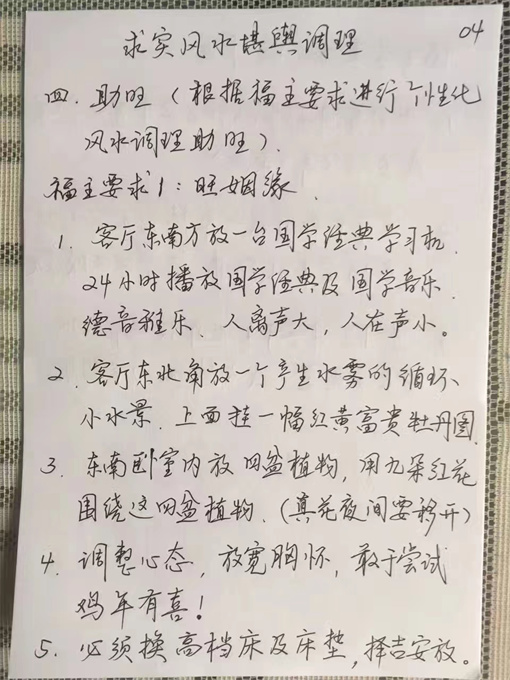 04
求实风水堪舆调理
四. 助旺（根据福主要求进行个性化
风水调理助旺）.
福主要求1：旺姻缘.
1. 客厅东南方放一台国学经典学习机.
24小时播放国学经典及国学音乐.
德音雅乐. 人离声大, 人在声小。
2. 客厅东北角放一个产生水雾的循环
小水景. 上面挂一幅红黄富贵牡丹图.
3. 东南卧室内放四盆植物, 用九朵红花
围绕这四盆植物. (真花夜间要移开)
4. 调整心态, 放宽胸怀, 敢于尝试
鸡年有喜!
5. 必须换高档床及床垫, 择吉安放。